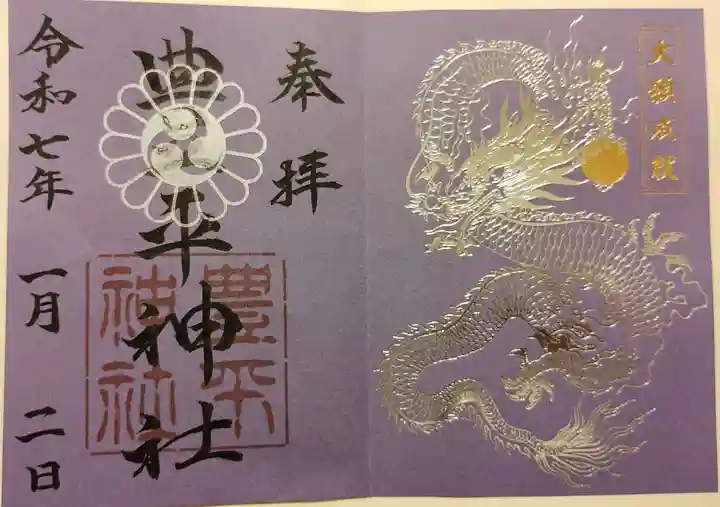 大願成就
奉拝
豊平神社
豊平
神社
令和七年 一月 二日